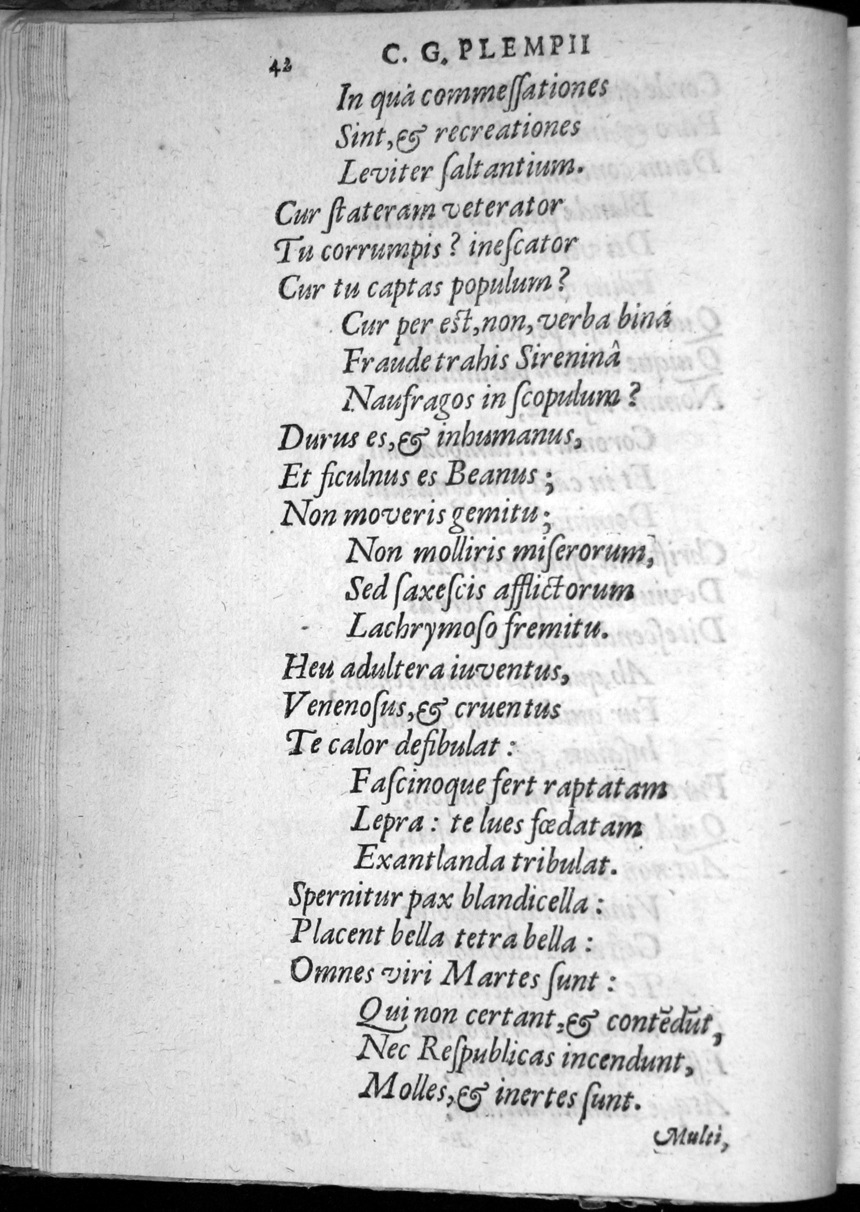 42 C. G. PLEMPII
In quâ commeſſationes
Sint, & recreationes
Leviter ſaltantium.
Cur ſtateram veterator
Tu corrumpis? ineſcator
Cur tu captas populum?
Cur per eſt, non, verba biná
Fraude trahis Sireninâ
Naufragos in ſcopulum?
Durus es, & inhumanus,
Et ficulnus es Beanus;
Non moveris gemitu;
Non molliris miſerorum,
Sed ſaxeſcis afflictorum
Lachrymoſo fremitu.
Heu adultera iuventus,
Venenoſus, & cruentus
Te calor defibulat:
Faſcinoque fert raptatam
Lepra: te lues fœdatam
Exantlanda tribulat.
Spernitur pax blandicella:
Placent bella tetra bella:
Omnes viri Martes ſunt:
Qui non certant, & contẽdũt,
Nec Reſpublicas incendunt,
Molles, & inertes ſunt.
Multi,